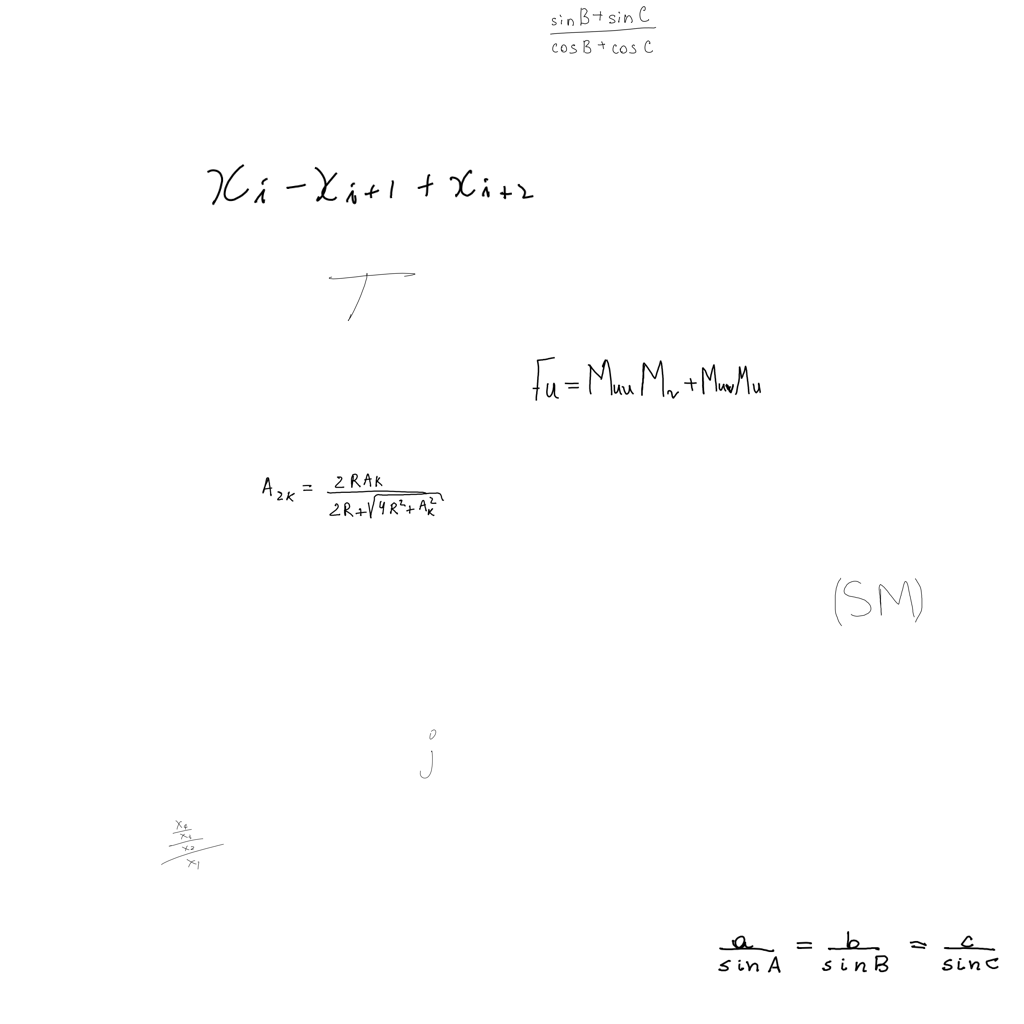 \frac{\sin B + \sin C}{\cos B + \cos C}
x_i - x_{i+1} + x_{i+2}
T
F_u = M_{uu} M_v + M_{uv} M_u
A_{2K} = \frac{2RA_K}{2R + \sqrt{4R^2 + A_K^2}}
(SM)
j
\frac{a}{\sin A} = \frac{b}{\sin B} = \frac{c}{\sin C}